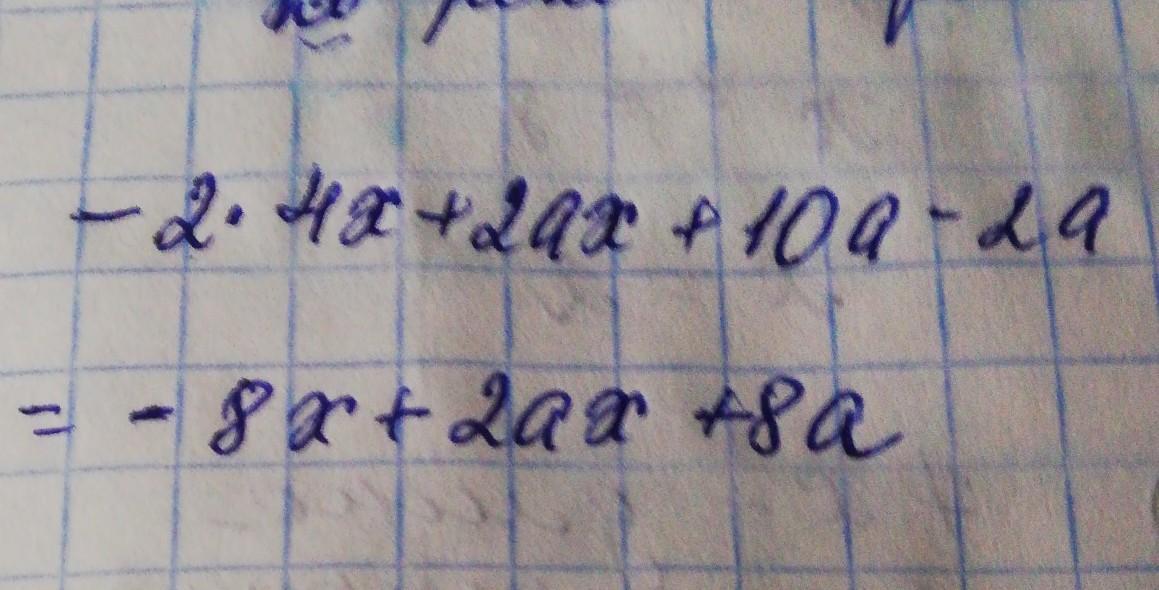 - 2 · 4x + 2ax + 10a - 2a
= - 8x + 2ax + 8a